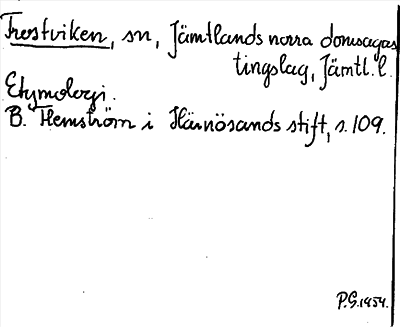 Trostviken, sn, Jämtlands norra domsagas
tingslag, Jämtl. l.
Etymologi.
B. Hemström i Härnösands stift, s. 109.
P.G. 1954.